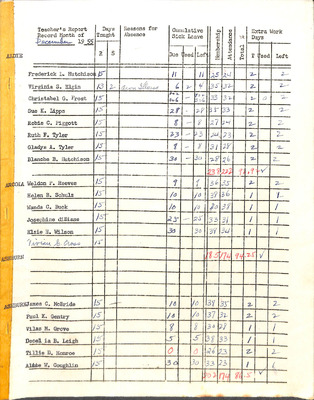 Teacher's Report Record Month of December 1955 Days Taught R S Reasons for Absence Cumulative Sick Leave Due Used Left Membership Attendance Total Extra Work Days Used Left
ALDIE
Frederick L. Hutchison 15 11 11 25 24 2 2
Virginia S. Elgin 13 2 6 2 4 35 32 2 2
Christobel G. Frost 15 33 32 2 0
Sue K. Lipps 15 28 - 28 35 33 2 2
Robie C. Piggott 15 8 - 8 27 24 2 2
Ruth F. Tyler 15 23 - 23 23 2 2
Gladys A. Tyler 15 8 - 8 31 28 2 2
Blanche B. Hutchison 15 30 - 30 28 26 2 2
ARCOLA Weldon P. Reeves 15 9 9 36 35 2 2
Helen B. Schulz 15 10 10 38 36 1 1
Wanda C. Buck 15 10 10 38 1 1
Josephine diZass 15 25 - 25 33 31 1 1
Elzie H. Wilson 15 30 30 38 34 1 1
Vivian C. Cross 15
ASHBURN 185 174 94.25 ✓
ASHBURN James C. McBride 15 - 10 10 38 35 2 2
Paul K. Gentry 15 - 10 10 37 32 2 2
Vilas M. Grove 15 - 8 8 30 28 1 1
Docella B. Leigh 15 - 5 - 5 38 33 1 1
Tillie D. Monroe 15 - 0 0 26 23 2 2
Addie W. Coughlin 15 - 30 30 33 23 1 1
202 174 86.5 ✓